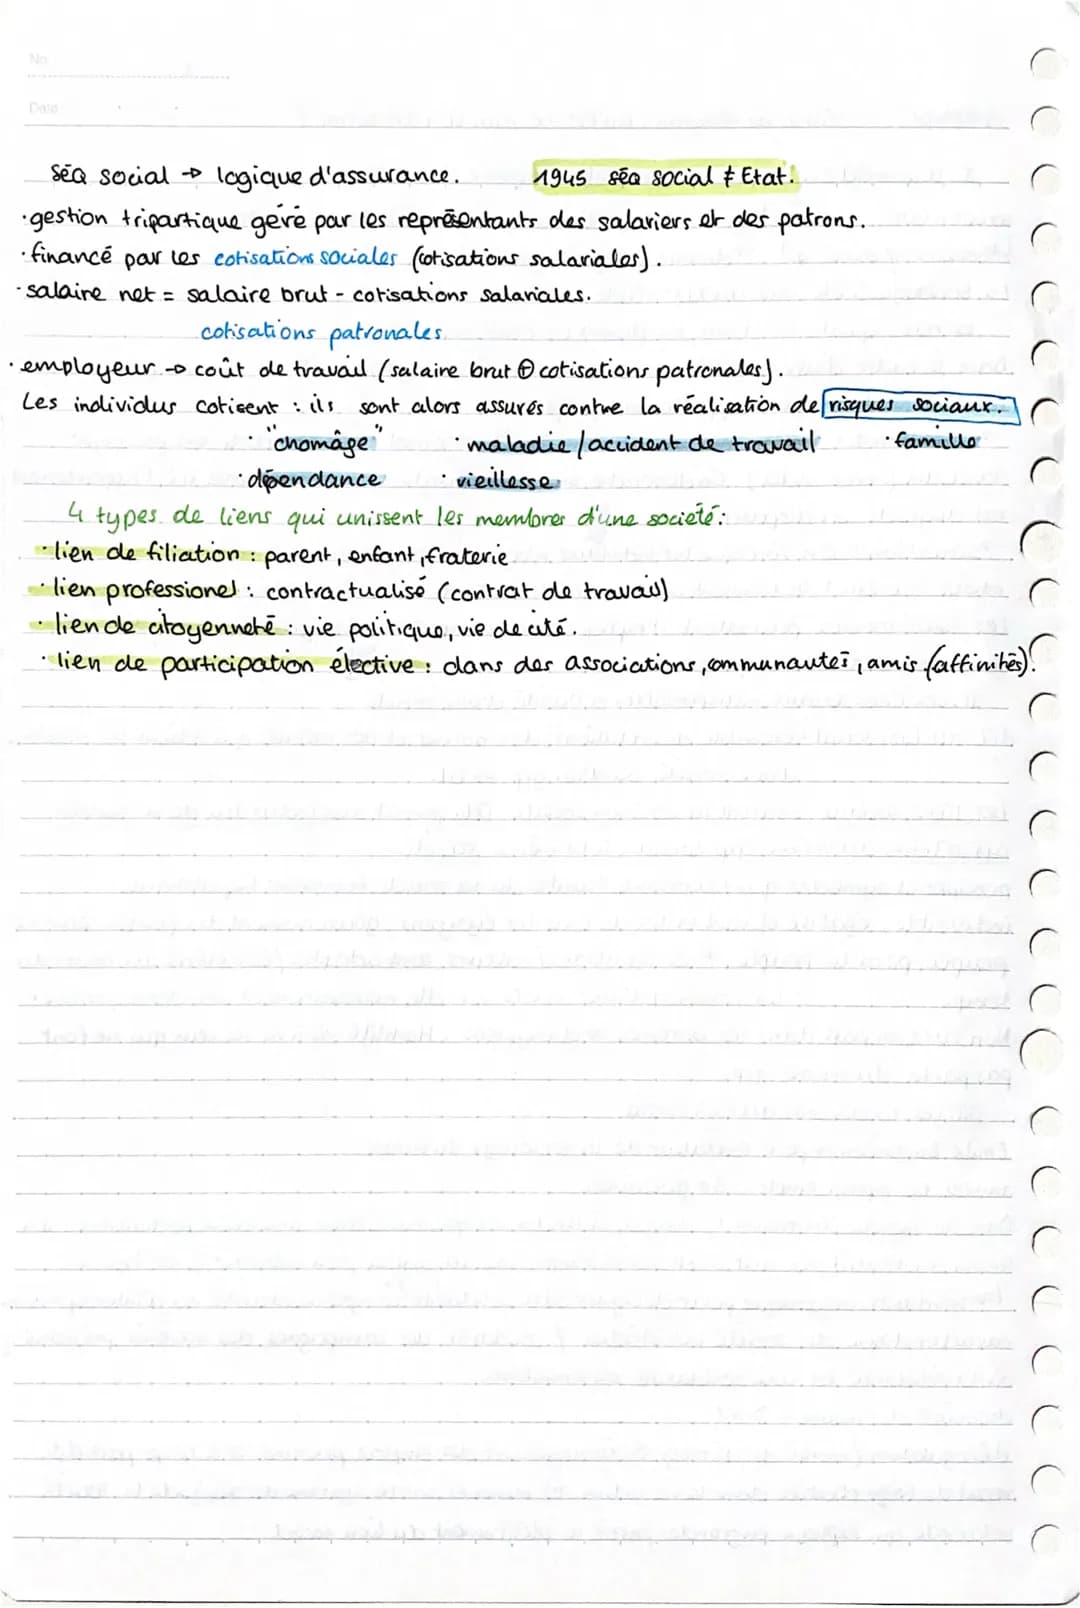 No
Date
Séa social → logique d'assurance. 1945 séa social ≠ Etat.
·gestion tripartique géré par les représentants des salariers et des patrons.
·financé par les cotisations sociales (cotisations salariales).
·salaire net = salaire brut - cotisations salariales.
cotisations patronales.
·employeur → coût de travail (salaire brut ⊕ cotisations patronales).
Les individus cotisent : ils sont alors assurés contre la réalisation de risques sociaux.
· "chomâge" · maladie/accident de travail · famille
· dépendance · vieillesse
4 types de liens qui unissent les membres d'une societé:
· lien de filiation : parent, enfant, fraterie
· lien professionel : contractualisé (contrat de travail)
· lien de citoyenneté : vie politique, vie de cité.
· lien de participation élective : dans des associations, communautés, amis (affinités).